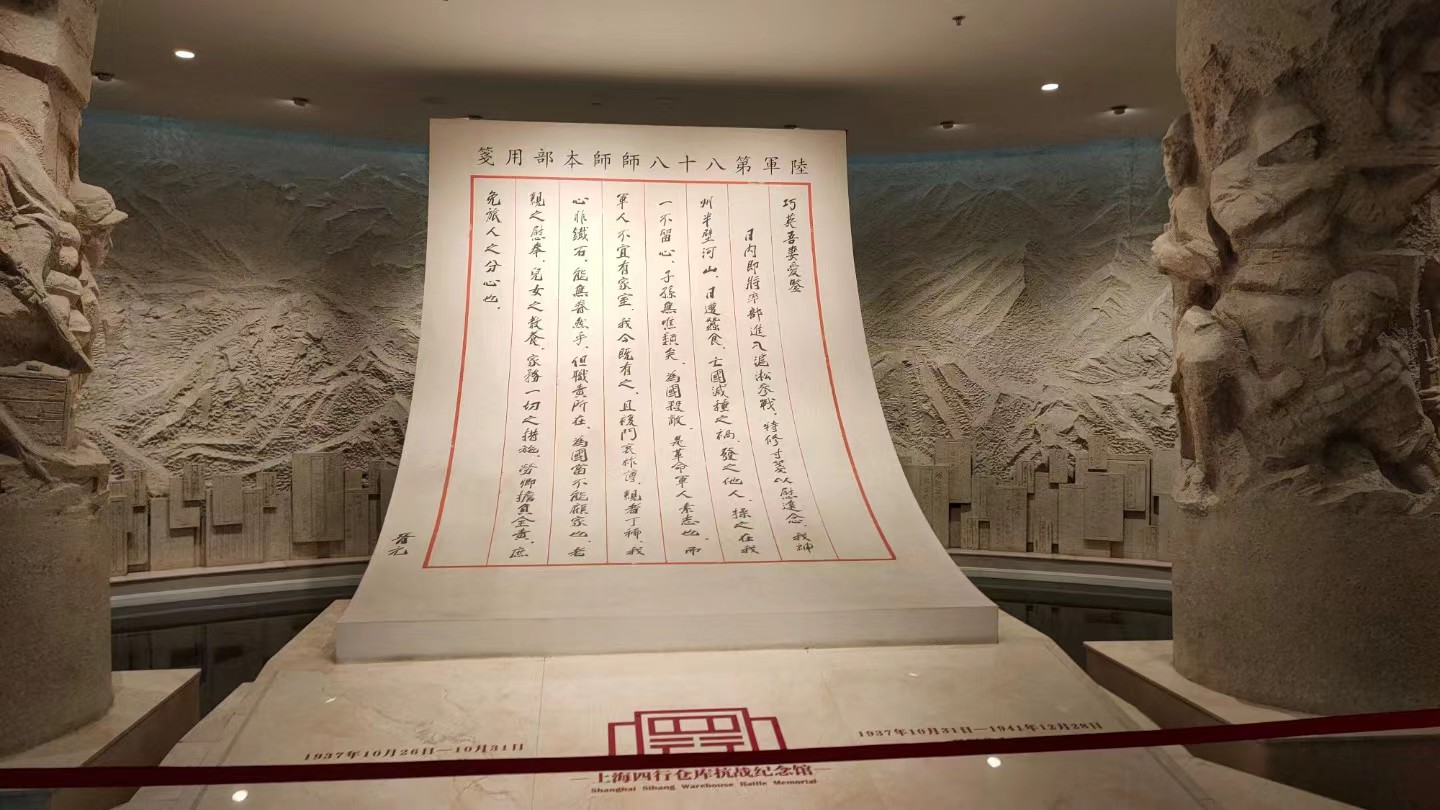 陸軍第八十八師師本部用箋
巧英吾妻愛鑒
日內即將率部進入滬淞參戰，特修寸箋以慰遠念。我神
州半壁河山，日遭蠶食，亡國滅種之禍，發之他人，操之在我
一不留心，子孫無噍類矣。為國殺敵，是革命軍人素志也，而
軍人不宜有家室，我今既有之，且復門衰祚薄，親者丁稀，我
心非鐵石，能無眷然乎，但職責所在，為國當不能顧家也。老
親之慰奉，兒女之教養，家務一切之措施，勞卿擔負全責，庶
免旅人之分心也。
晉元
1937年10月26日—10月31日
1937年10月31日—1941年12月28日
上海四行仓库抗战纪念馆
Shanghai Sihang Warehouse Battle Memorial